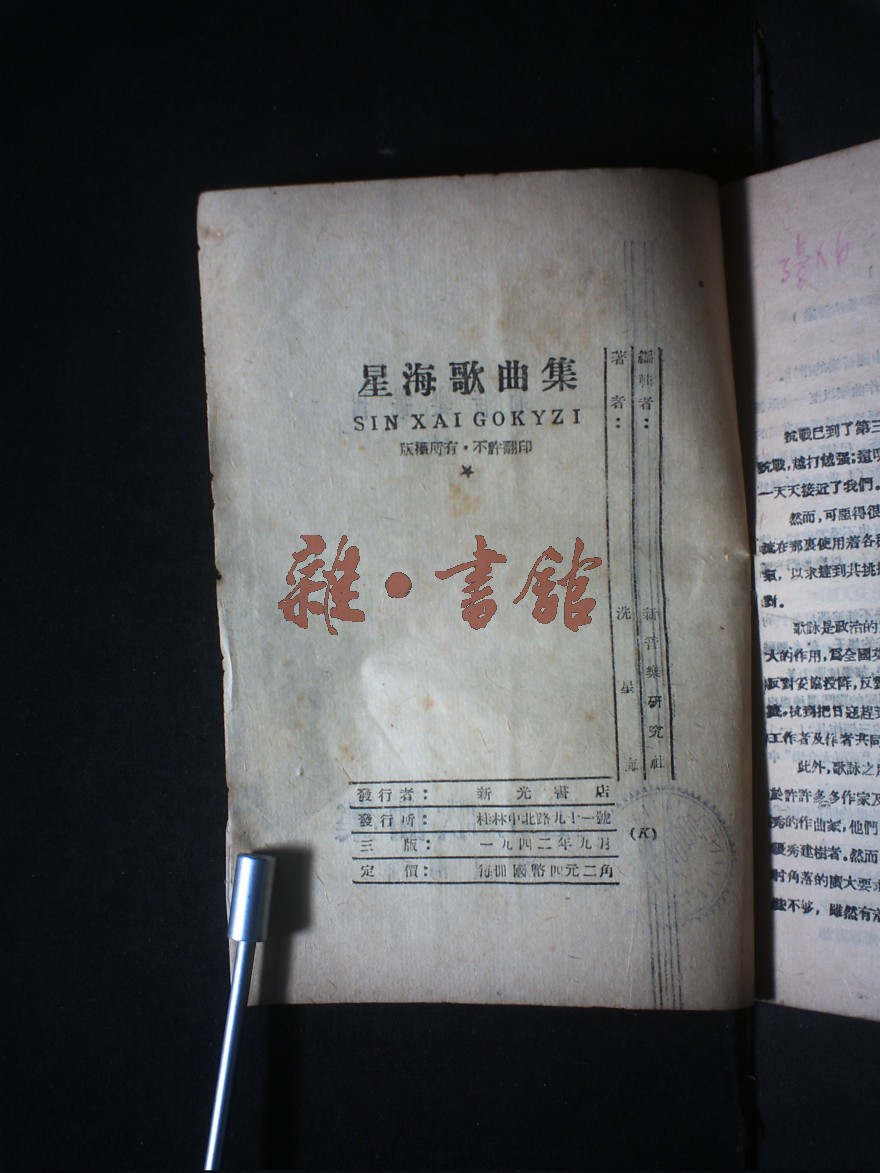 星海歌曲集
SIN XAI GOKYZI
版權所有・不許翻印
★
編輯者：新音樂研究社
著者：冼星海
發行者：新光書店
發行所：桂林中北路九十一號
三版：一九四二年九月
定價：每冊國幣四元二角
(A)
雜・書館
抗戰已到了第三
抗戰，越打越强；這
一天天接近了我們。
然而，可惡得很
在那裏使用着各
以求達到其挑
對。
歌詠是政治的
大的作用，爲全國
反對妥協投降，反
抗到把日寇趕到
工作者及作者共同
此外，歌詠之
於許許多多作家及
秀的作曲家，他們
優秀建樹者。然而
村角落的廣大要求
些不够，雖然有